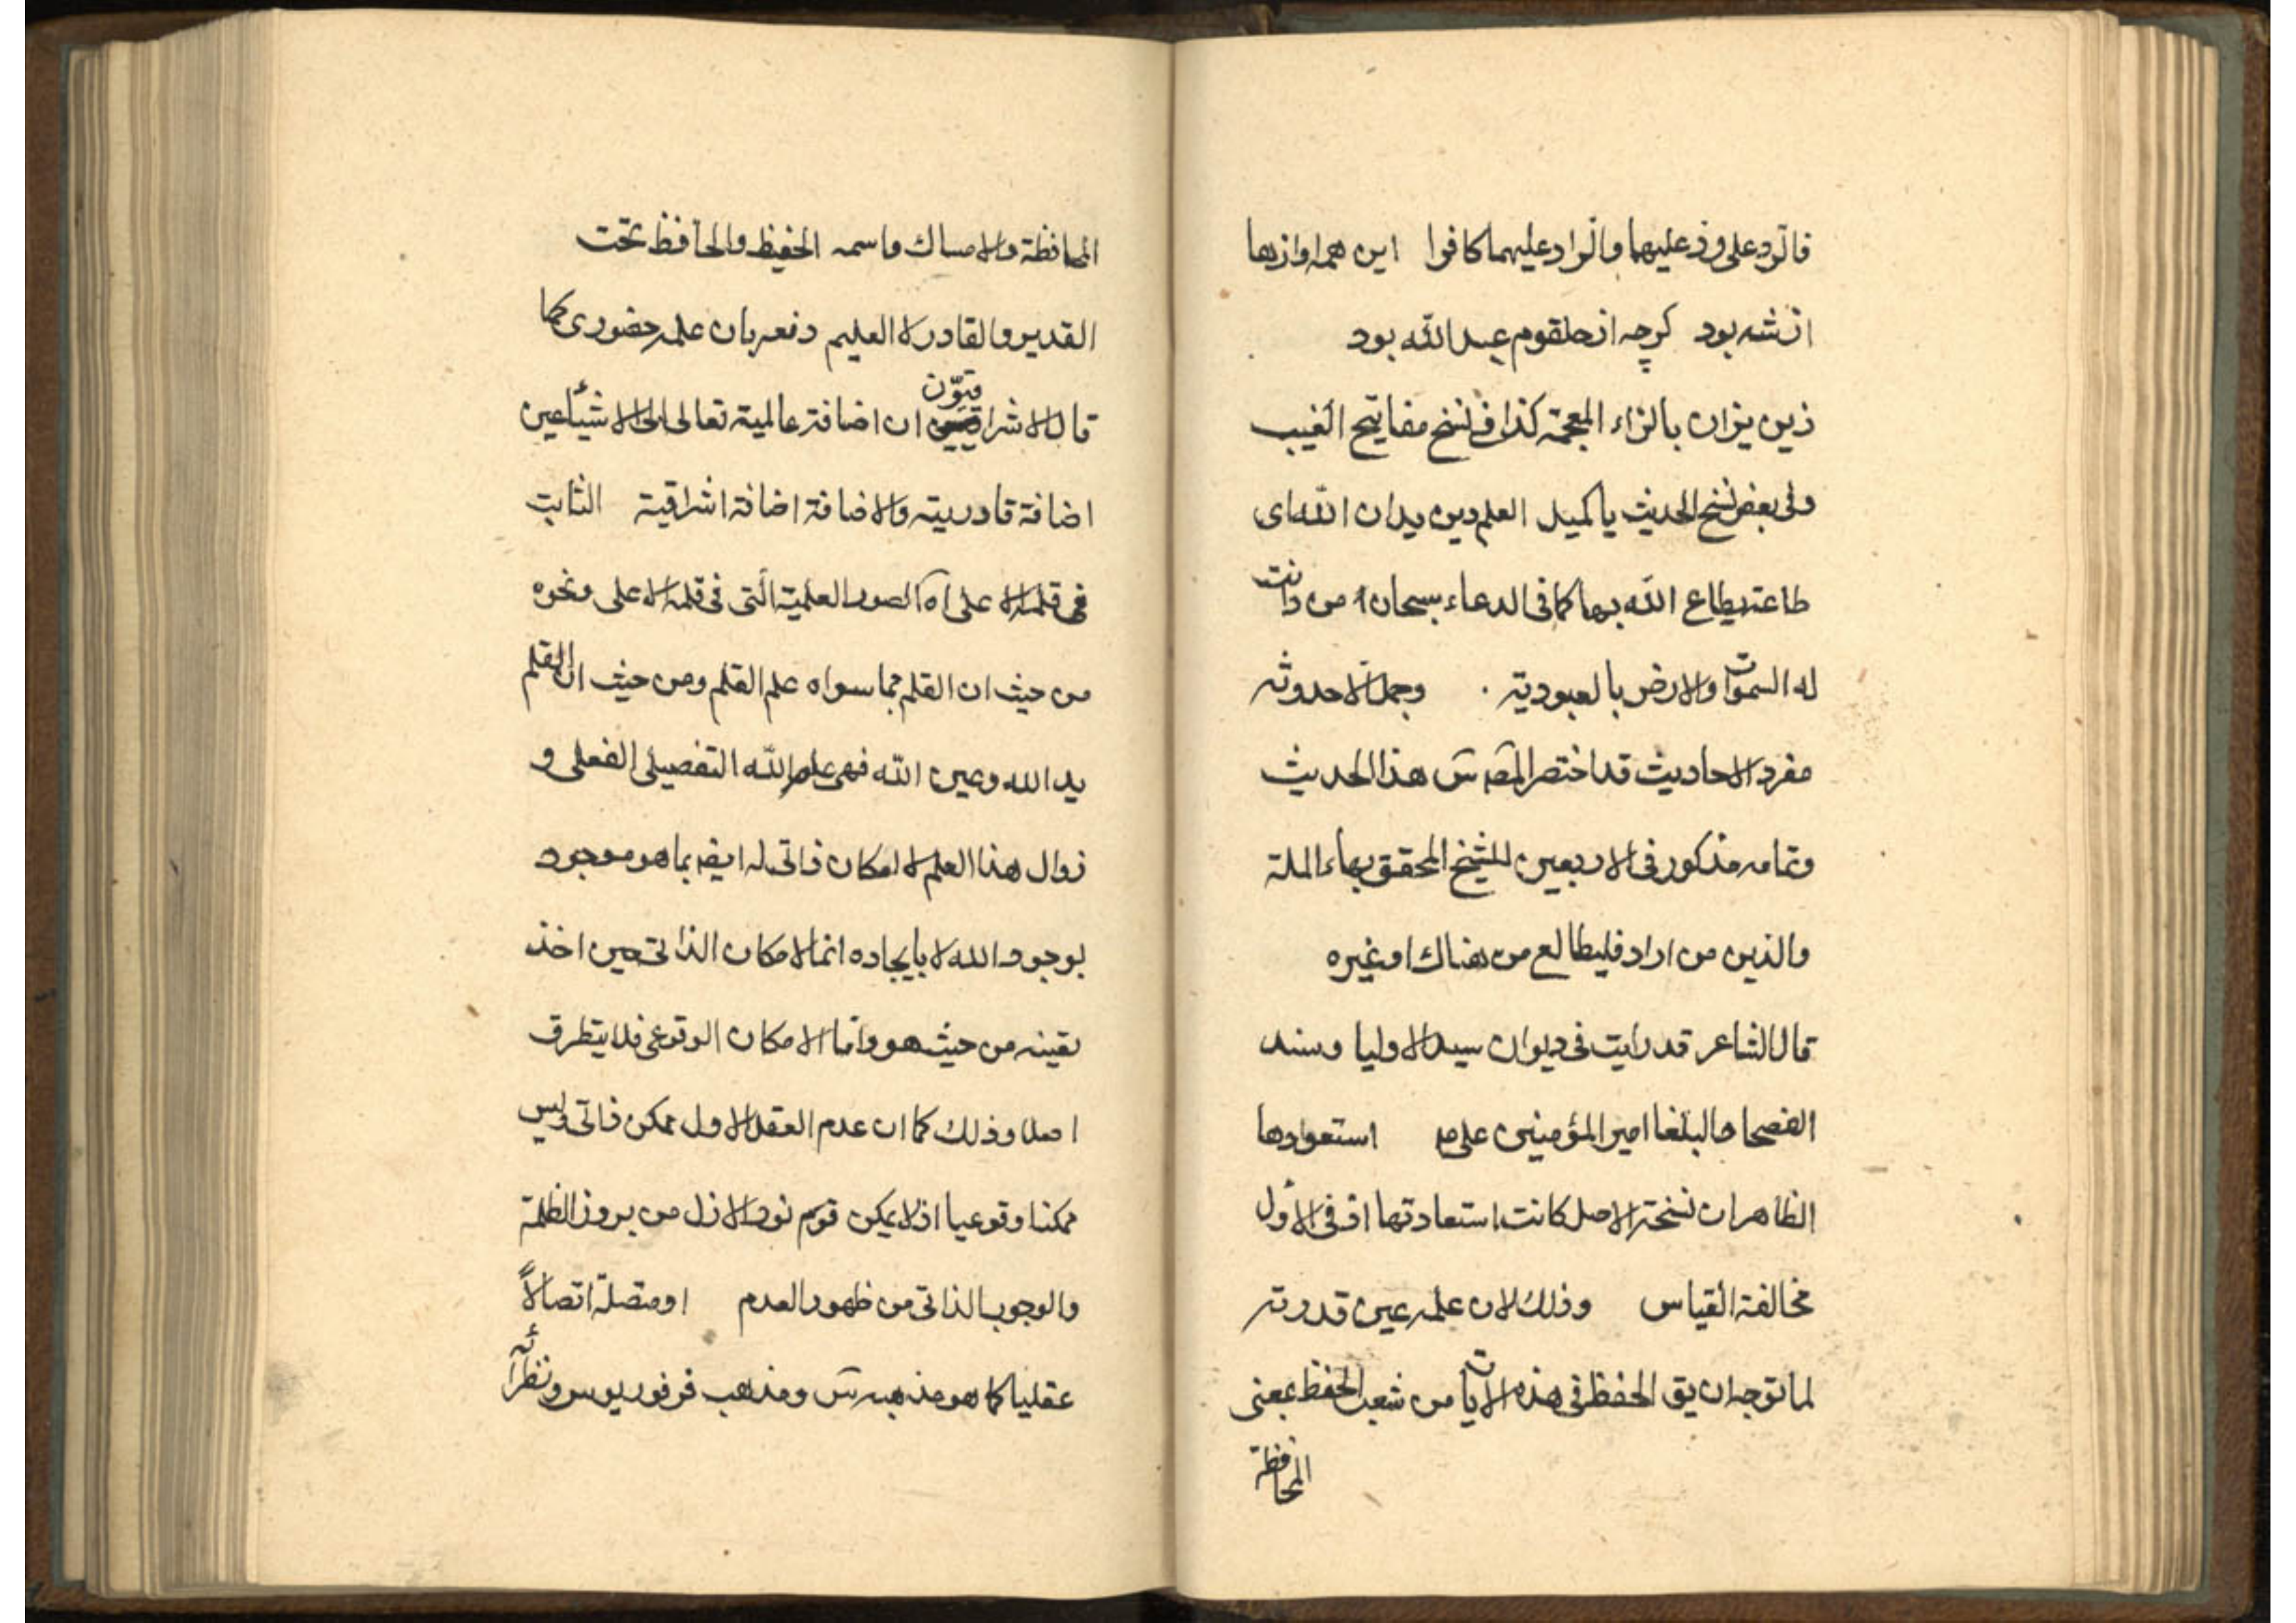 فالرد على وزعليهما والراد عليهما كافوا این همه اوازها
از شه بود کرچه از حلقوم عبد الله بود
زين يزان بالزاء المعجمة كذا في نسخ مفاتيح الغيب
وفى بعض نسخ الحديث يا كميل العلم دين يدان الله اى
طاعة يطاع الله بها كما فى الدعاء سبحان من دانت
له السموات والارض بالعبودية وجمل الاحدوثه
مفرد الاحاديث قد اختصر المص س هذا الحديث
وتمامه مذكور فى الاربعين للشيخ المحقق بهاء الملة
والذين من اراد فليطالع من هناك او غيره
قال الشاعر قد رايت فى ديوان سيد الاوليا وسند
الفصحا والبلغا امير المؤمنين على استعوادها
الظاهر ان نسخة الاصل كانت استعادتها اذ فى الاول
مخالفة القياس وذلك لان علمه عين قدرته
لما توجه ان يق الحفظ فى هذه الايات من شعب الحفظ بمعنى
المحافظة
المحافظة والامساك واسمه الحفيظ والحافظ تحت
القدير والقادر لا العليم دفعه بان علمه حضورى كما
قال الاشراقيون ان اضافة عالمية تعالى الى الاشياء عين
اضافة قادرية والاضافة اضافة اشراقية الثابت
فى قلمه الاعلى اه الصور العلمية التى فى قلمه الاعلى ونحوه
من حيث ان القلم مما سواه علم القلم ومن حيث ان القلم
يد الله وعين الله فهى علم الله التفصيلى الفعلى و
زوال هذا العلم لا امكان ذاتى له ايضا بما هو موجود
بوجود الله لا بايجاده انما الامكان الذاتى حين اخذ
تعينه من حيث هو واما الامكان الوقوعى فلا يتطرق
اصلا وذلك كما ان عدم العقل الاول ممكن ذاتى وليس
ممكنا وقوعيا اذ لا يمكن قوم نور الازل من بروز الظلمة
والوجوب الذاتى من ظهور العدم او متصلة اتصالاً
عقليا كما هو مذهبه س ومذهب فرفوريوس ونظرائه